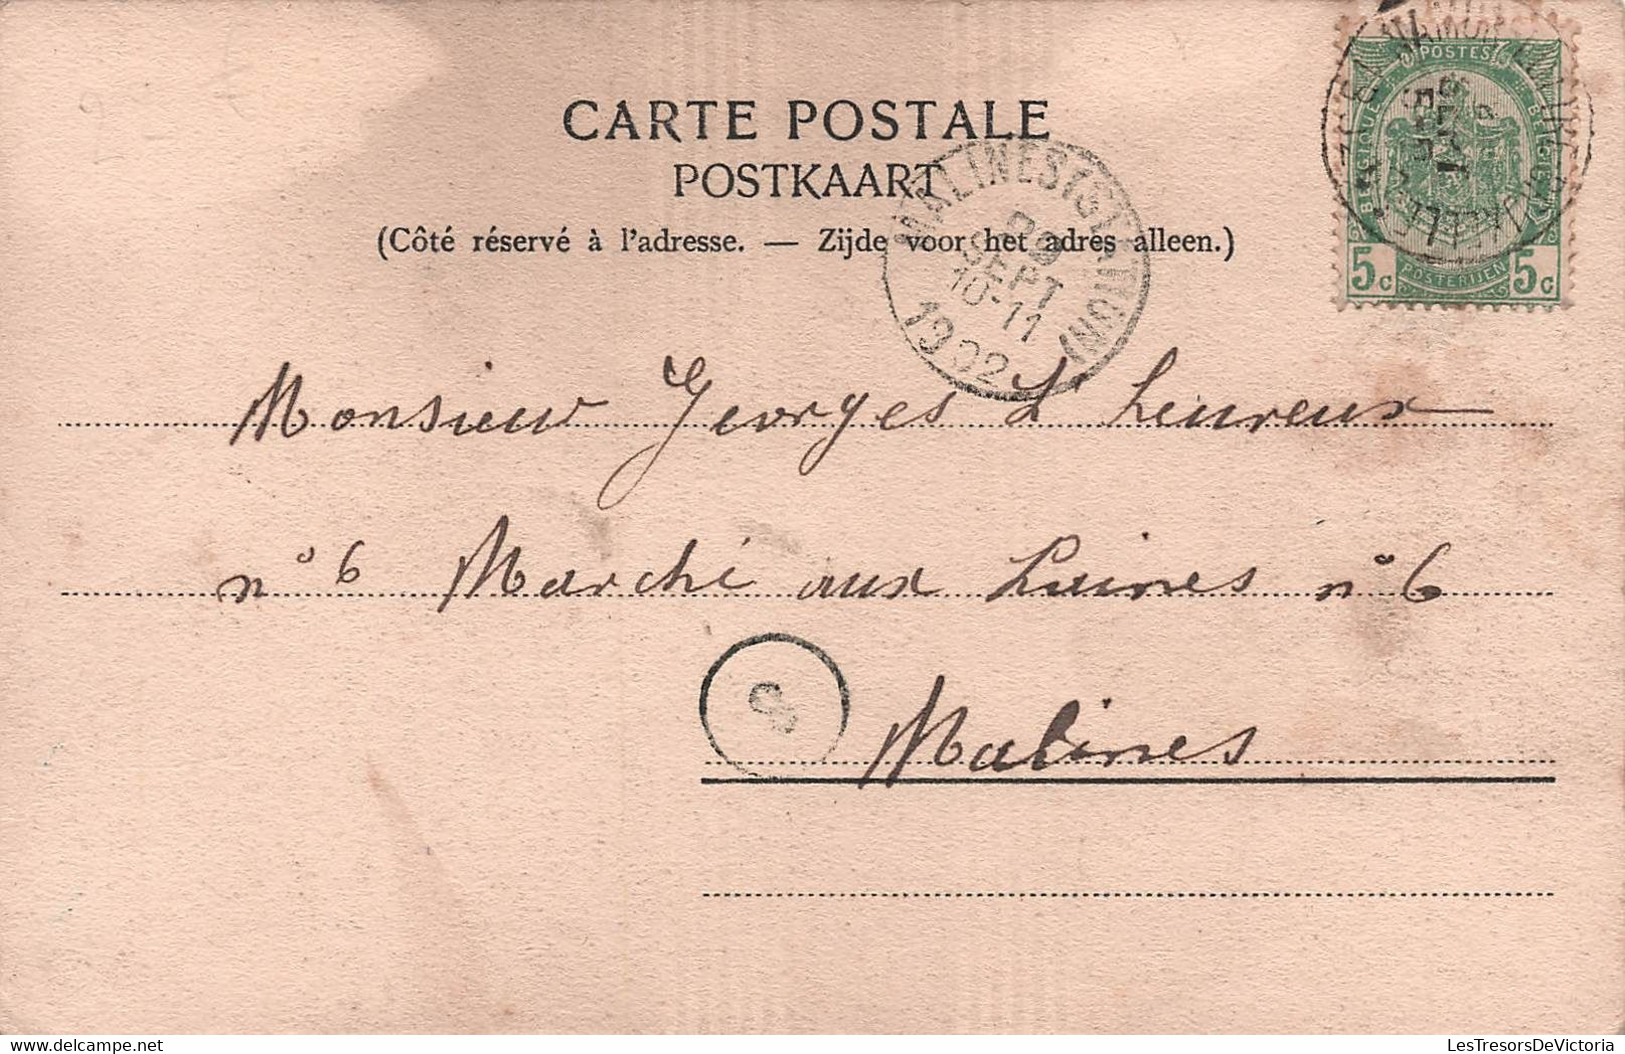 CARTE POSTALE
POSTKAART
(Côté réservé à l'adresse. — Zijde voor het adres alleen.)
POSTES
BELGIQUE BELGIE
5c POSTERIJEN 5c
MALINES (STATION)
29
SEPT
10-11
1902
Monsieur Georges L'heureux
n° 6 Marché aux Laines n° 6
Malines
LesTresorsDeVictoria